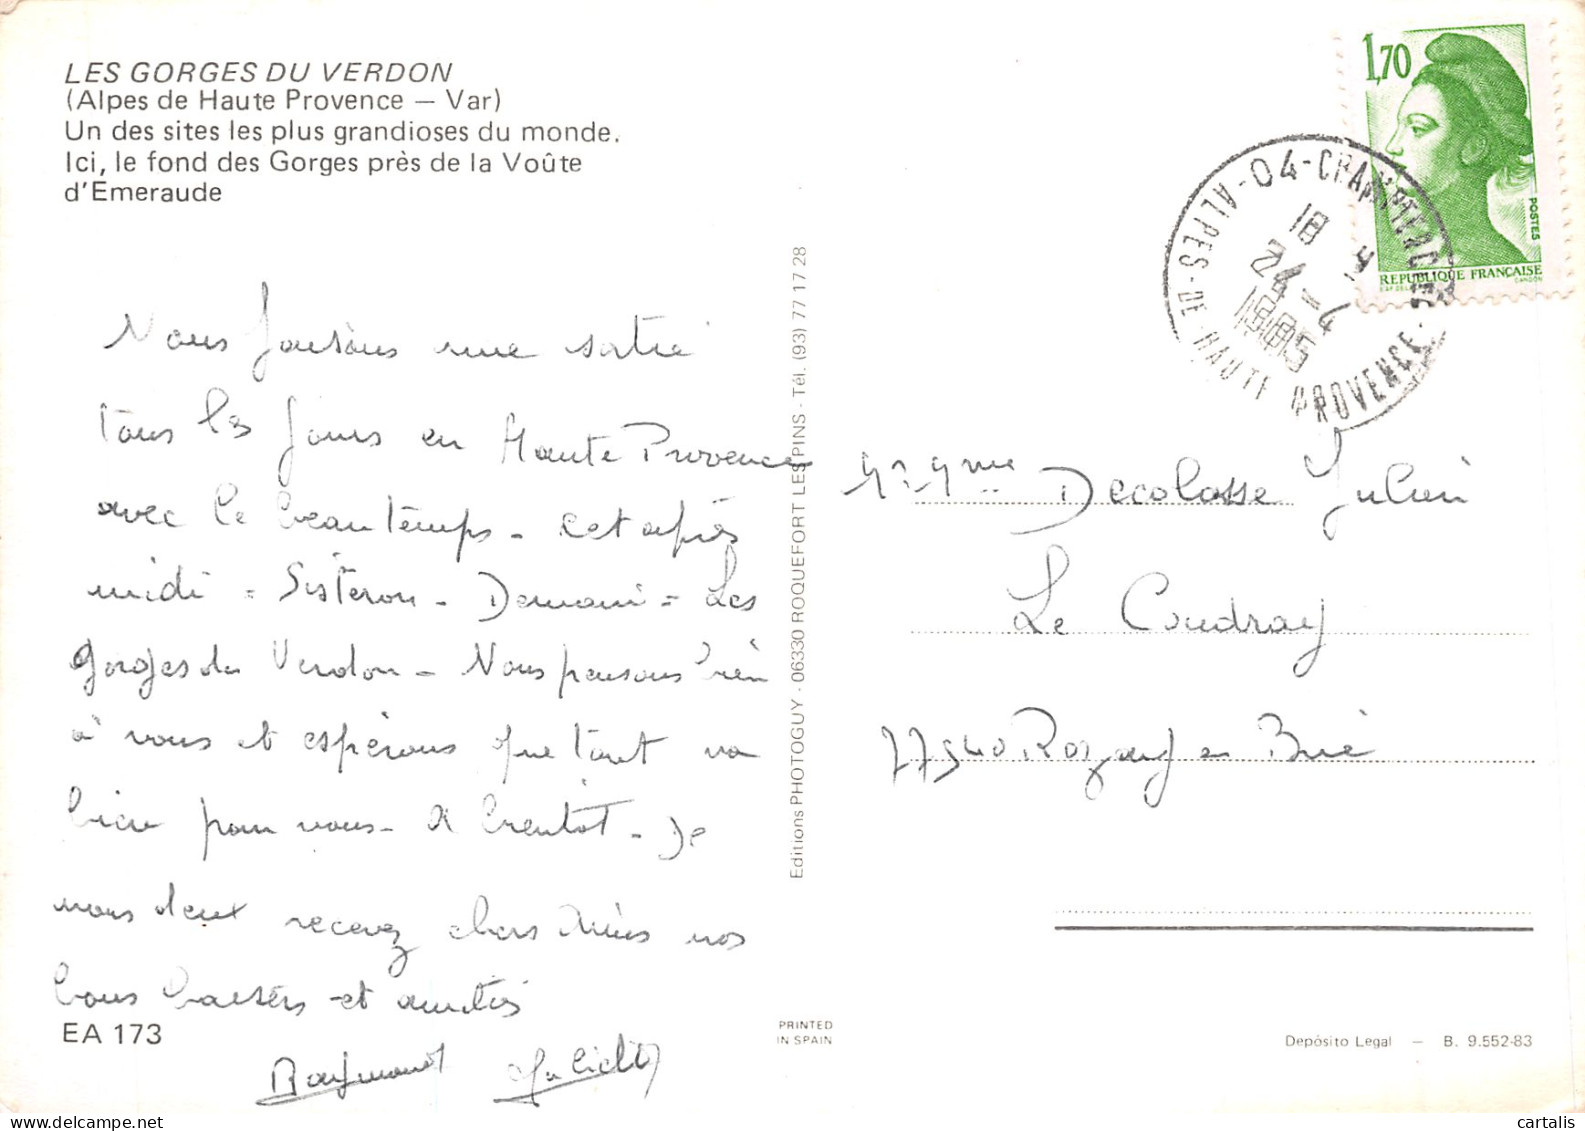 LES GORGES DU VERDON
(Alpes de Haute Provence – Var)
Un des sites les plus grandioses du monde.
Ici, le fond des Gorges près de la Voûte
d'Emeraude
Nous faisons une sortie
tous les jours en Haute Provence
avec le beau temps - cet après
midi - Sisteron - Demain - Les
gorges du Verdon - Nous pensons bien
à vous et espérons que tout va
bien pour vous - A bientôt - De
nous deux recevez chers Amis nos
bons baisers et amitiés
Raymond Juliette
EA 173
Editions PHOTOGUY - 06330 ROQUEFORT LES PINS - Tél. (93) 77 17 28
PRINTED
IN SPAIN
1,70
POSTES
REPUBLIQUE FRANÇAISE
GANDON
04 - CHAMPTERCIER
18 H
24 - 4
1985
ALPES-DE-HAUTE PROVENCE
Mr Mme Decolasse Julien
Le Coudray
77540 Rozay en Brie
Depósito Legal – B. 9.552-83
cartalis